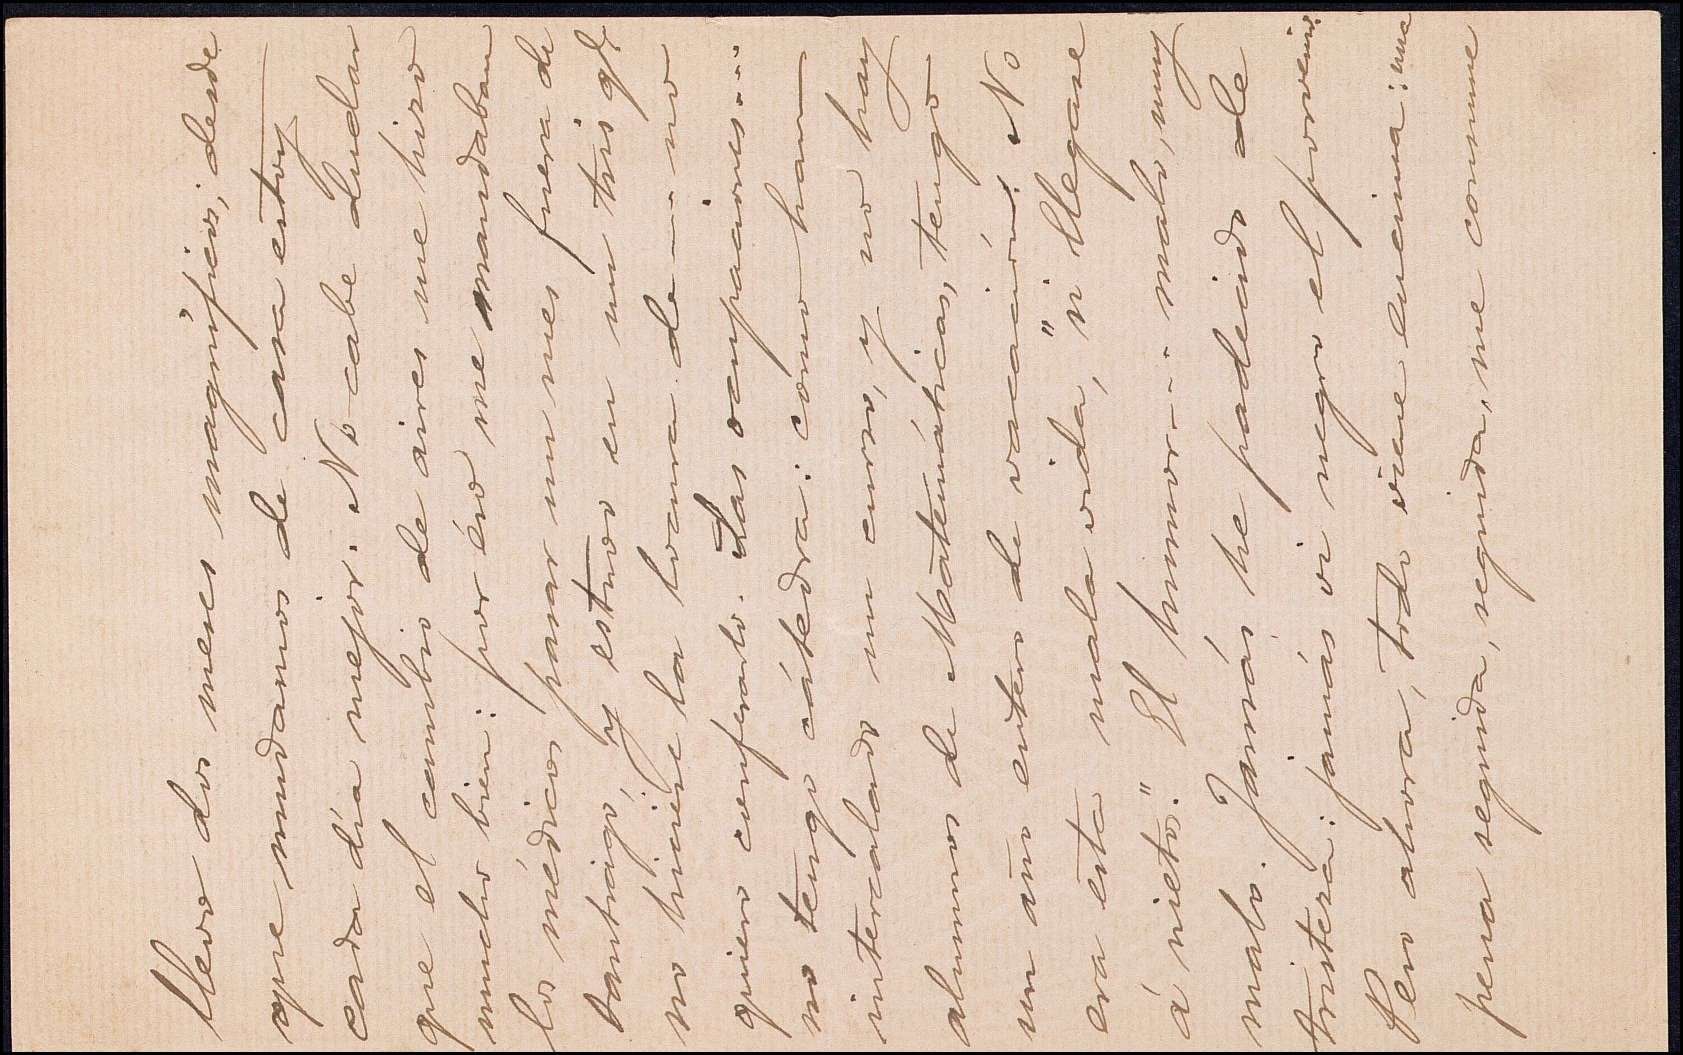 Llevo dos meses magníficos; desde
que mudamos de casa estoy
cada día mejor. No cabe dudar
que el cambio de aires me hizo
mucho bien: por éso me mandaban
los médicos pasar un mes fuera de
Santiago, y estuvo en un tris qe
no hiciese la broma de.... no
quiero confesarlo. Las ocupaciones....
no tengo cátedra: como han
intercalado un curso, y no hay
alumnos de Matemáticas, tengo
un año entero de vacación. No
era esta mala vida, "si llegase
á nieto." El humor.... malo, muy
malo. Jamás he padecido de
tristeza: jamás vi negro el porvenir.
Pero ahora, todo viene encima: una
pena seguida, seguida, me consume